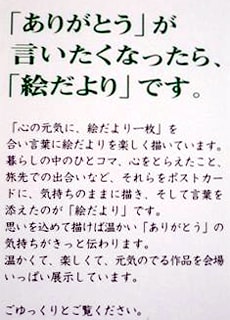 「ありがとう」が
言いたくなったら、
「絵だより」です。
「心の元気に、絵だより一枚」を
合い言葉に絵だよりを楽しく描いています。
暮らしの中のひとコマ、心をとらえたこと、
旅先での出合いなど、それらをポストカー
ドに、気持ちのままに描き、そして言葉を
添えたのが「絵だより」です。
思いを込めて描けば温かい「ありがとう」の
気持ちがきっと伝わります。
温かくて、楽しくて、元気のでる作品を会場
いっぱい展示しています。
ごゆっくりとご覧ください。